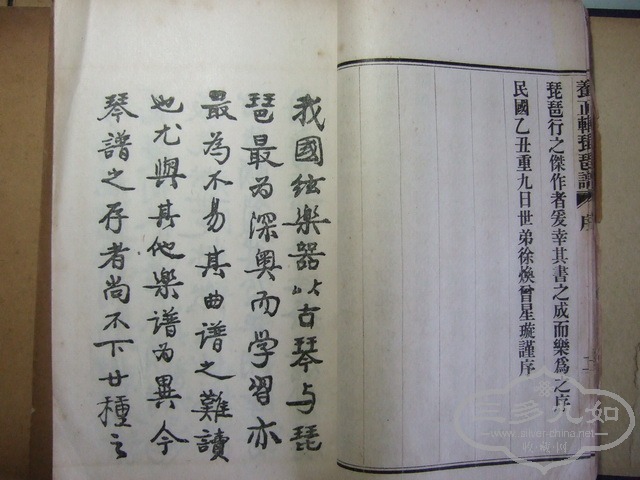 養正軒琵琶譜 序
琵琶行之傑作者爰幸其書之成而樂爲之序
民國乙丑重九日世弟徐煥曾星璇謹序
我國絃樂器以古琴与琵
琶最为深奥而学習亦
最為不易其曲譜之難讀
也尤與其他樂譜為異今
琴譜之存者尚不下廿種之
三多九如
www.silver-china.net
收藏网